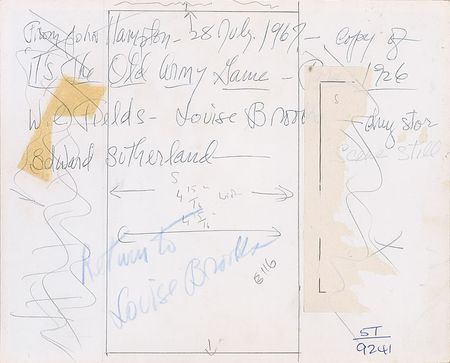 From John Hampton - 28 July, 1967 - Copy of
"It's the Old Army Game - 1926
W.C. Fields - Louise Brooks - drug store
Edward Sutherland - Scene Still
S
S
4 15"
16
4 15"
16
Return to
Louise Brooks
G 116
ST
9241